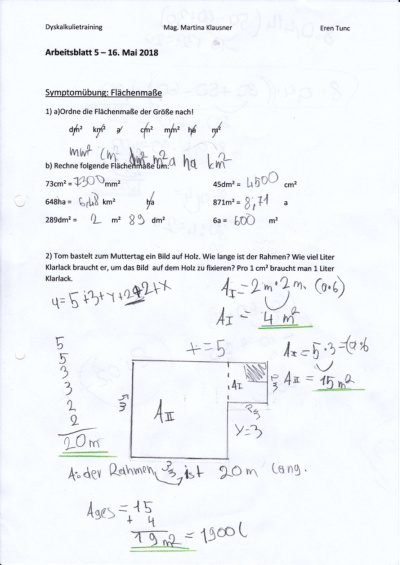 Dyskalkulietraining Mag. Martina Klausner Eren Tunc
Arbeitsblatt 5 – 16. Mai 2018
Symptomübung: Flächenmaße
1) a)Ordne die Flächenmaße der Größe nach!
dm² km² a cm² mm² ha m²
mm² cm² dm² m² a ha km²
b) Rechne folgende Flächenmaße um:
73cm² = 7300 mm² 45dm² = 4500 cm²
648ha = 6,48 km² ha 871m² = 8,71 a
289dm² = 2 m² 89 dm² 6a = 600 m²
2) Tom bastelt zum Muttertag ein Bild auf Holz. Wie lange ist der Rahmen? Wie viel Liter
Klarlack braucht er, um das Bild auf dem Holz zu fixieren? Pro 1 cm² braucht man 1 Liter
Klarlack.
u=5+3+y+2+2+x
A I = 2m · 2m (a·b)
A I = 4 m²
x=5
A II = 5·3=(a·b
A II = 15m²
5
5
3
3
2
2
20m
A II
A I
y=3
A: der Rahmen ist 20m lang.
Ages = 15
+ 4
19m² = 1900l